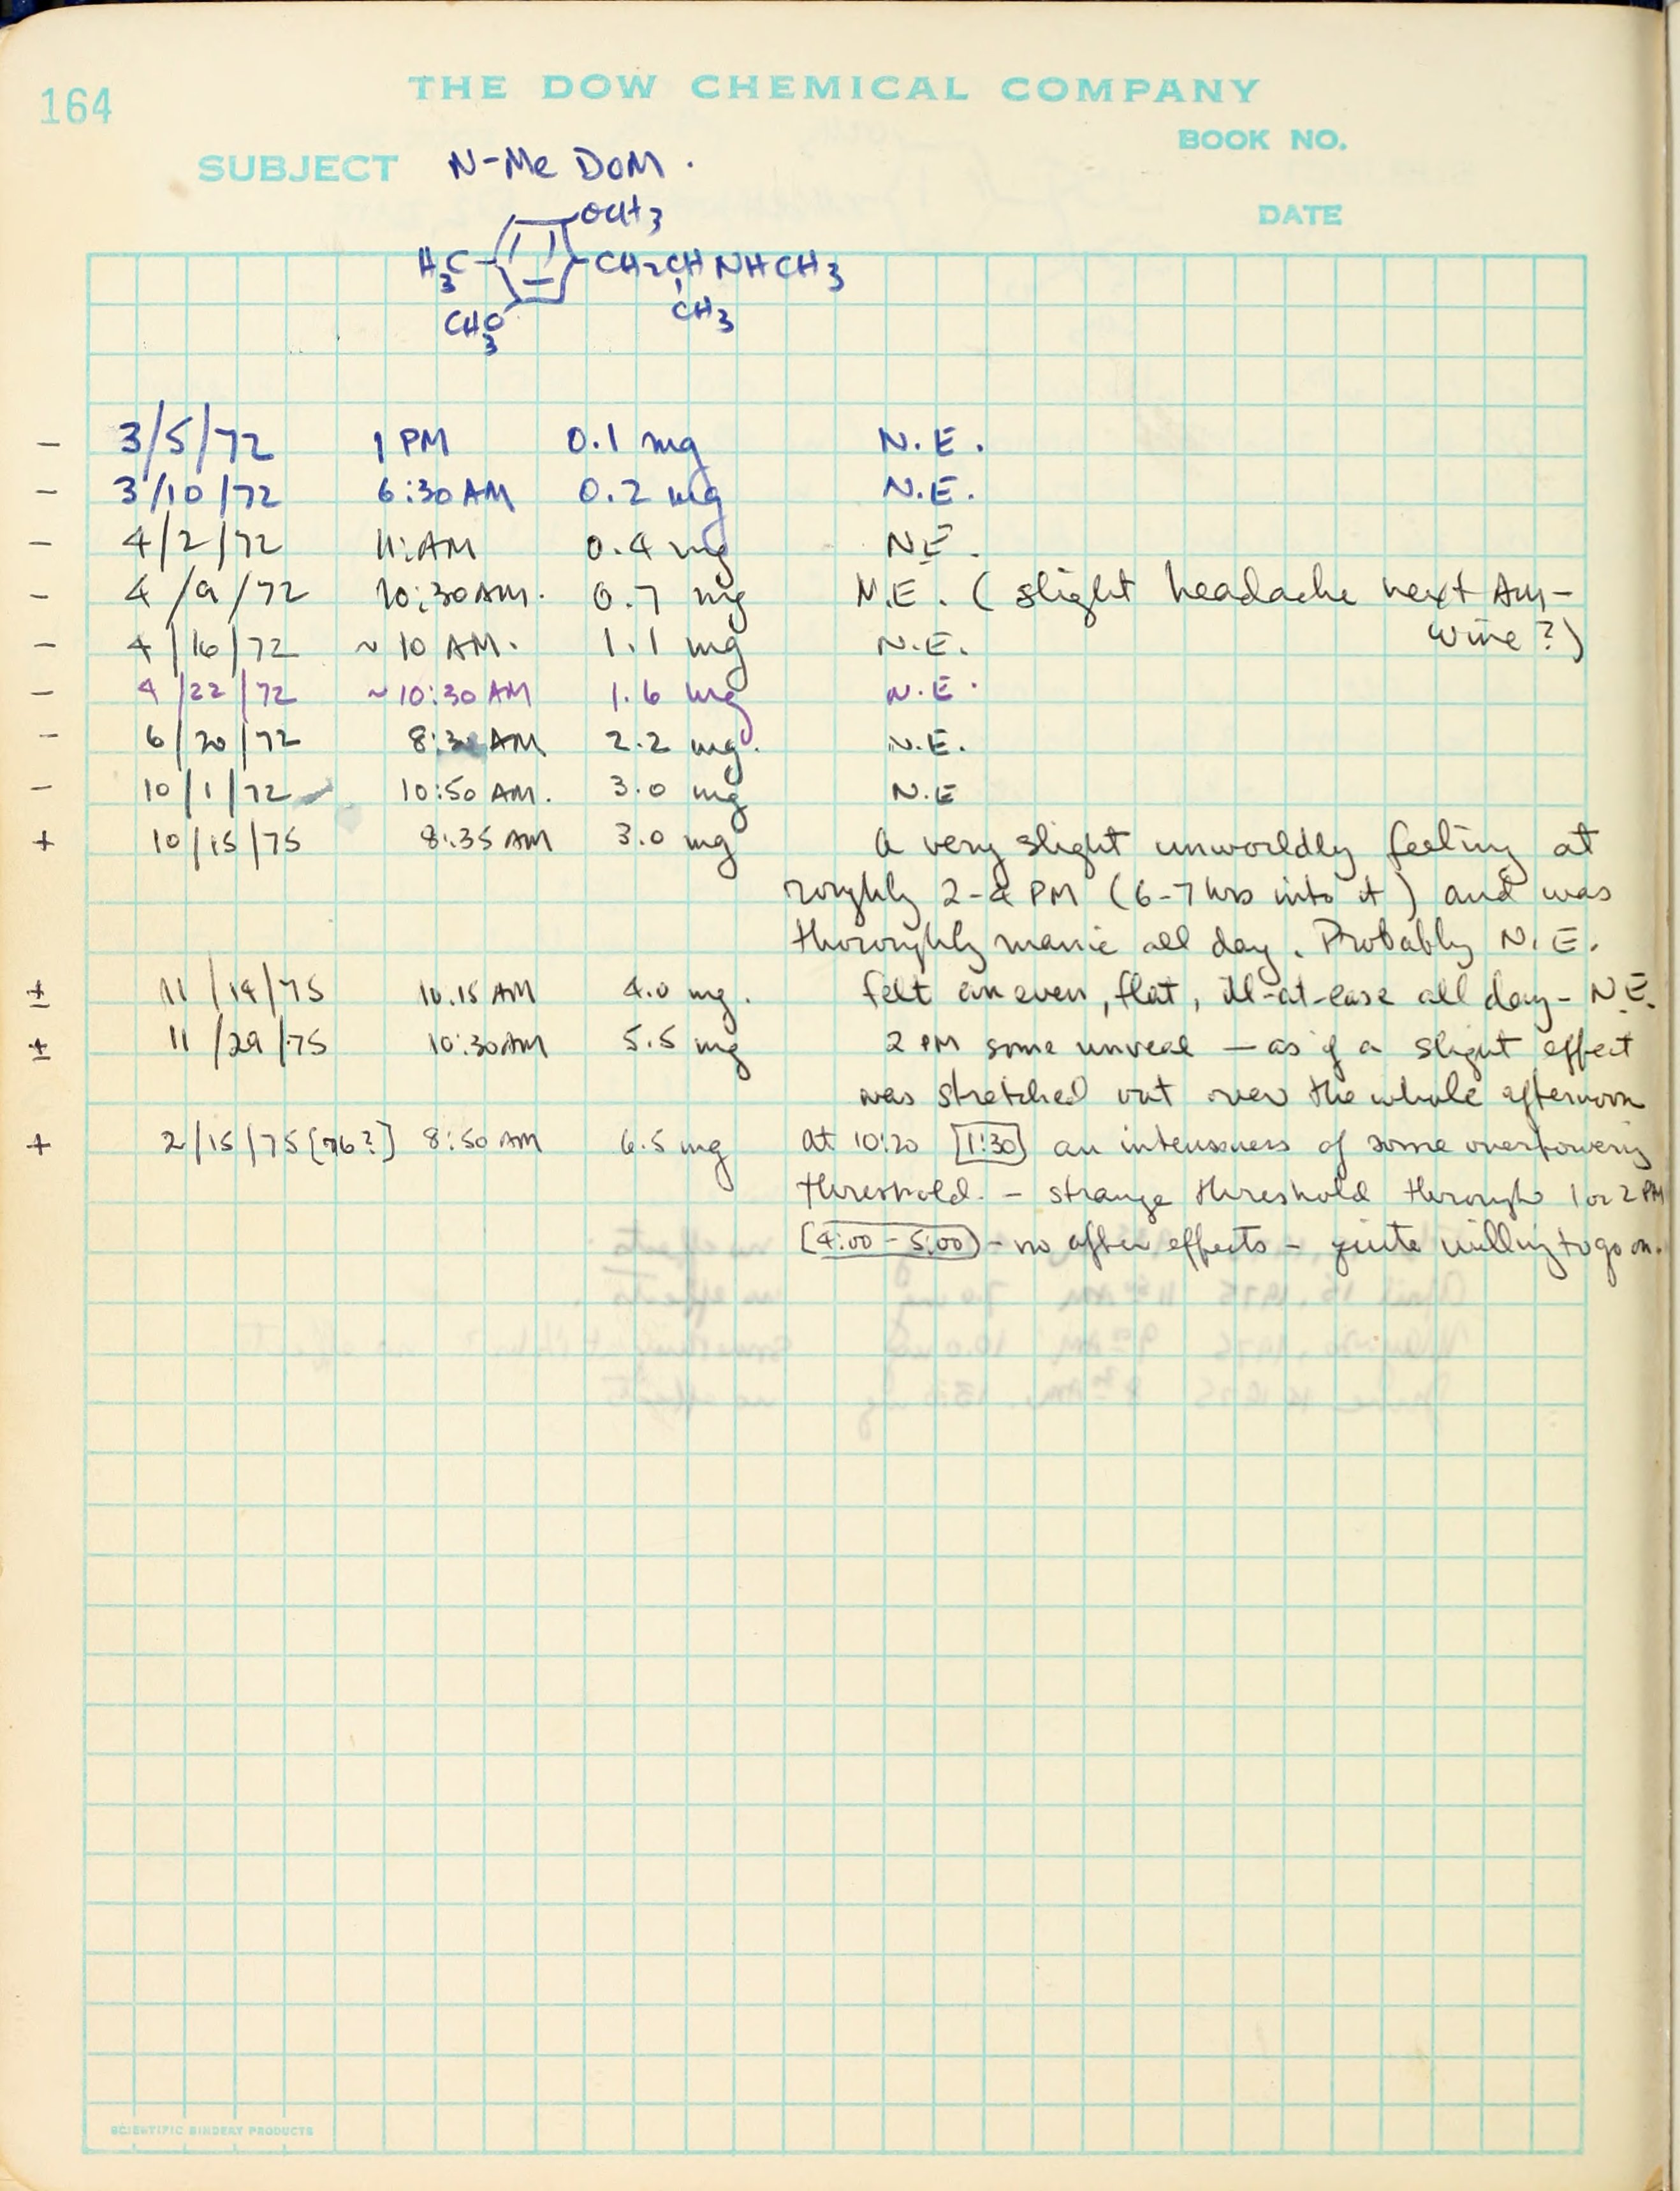 164
THE DOW CHEMICAL COMPANY
BOOK NO.
SUBJECT N-Me DOM.
DATE
OCH3
H3C CH2CHNHCH3
CH3
CH3O
- 3/5/72 1 PM 0.1 mg N.E.
- 3/10/72 6:30 AM 0.2 mg N.E.
- 4/2/72 11: AM 0.4 mg N.E.
- 4/9/72 10:30 AM. 0.7 mg N.E. (slight headache next AM-
wine?)
- 4/16/72 ~10 AM. 1.1 mg N.E.
- 4/22/72 ~10:30 AM 1.6 mg N.E.
- 6/20/72 8:30 AM 2.2 mg. N.E.
- 10/1/72 10:50 AM. 3.0 mg N.E
+ 10/15/75 8:35 AM 3.0 mg A very slight unworldly feeling at
roughly 2-4 PM (6-7 hrs into it) and was
thoroughly manic all day. Probably N.E.
± 11/14/75 10.15 AM 4.0 mg. felt an even, flat, ill-at-ease all day - N.E.
± 11/29/75 10:30 AM 5.5 mg 2 PM some unreal - as if a slight effect
was stretched out over the whole afternoon
+ 2/15/75 [76?] 8:50 AM 6.5 mg at 10:20 [1:30] an intenseness of some overpowering
threshold. - strange threshold through 1 or 2 PM
[4:00 - 5:00] - no after effects - quite willing to go on.
SCIENTIFIC BINDERY PRODUCTS